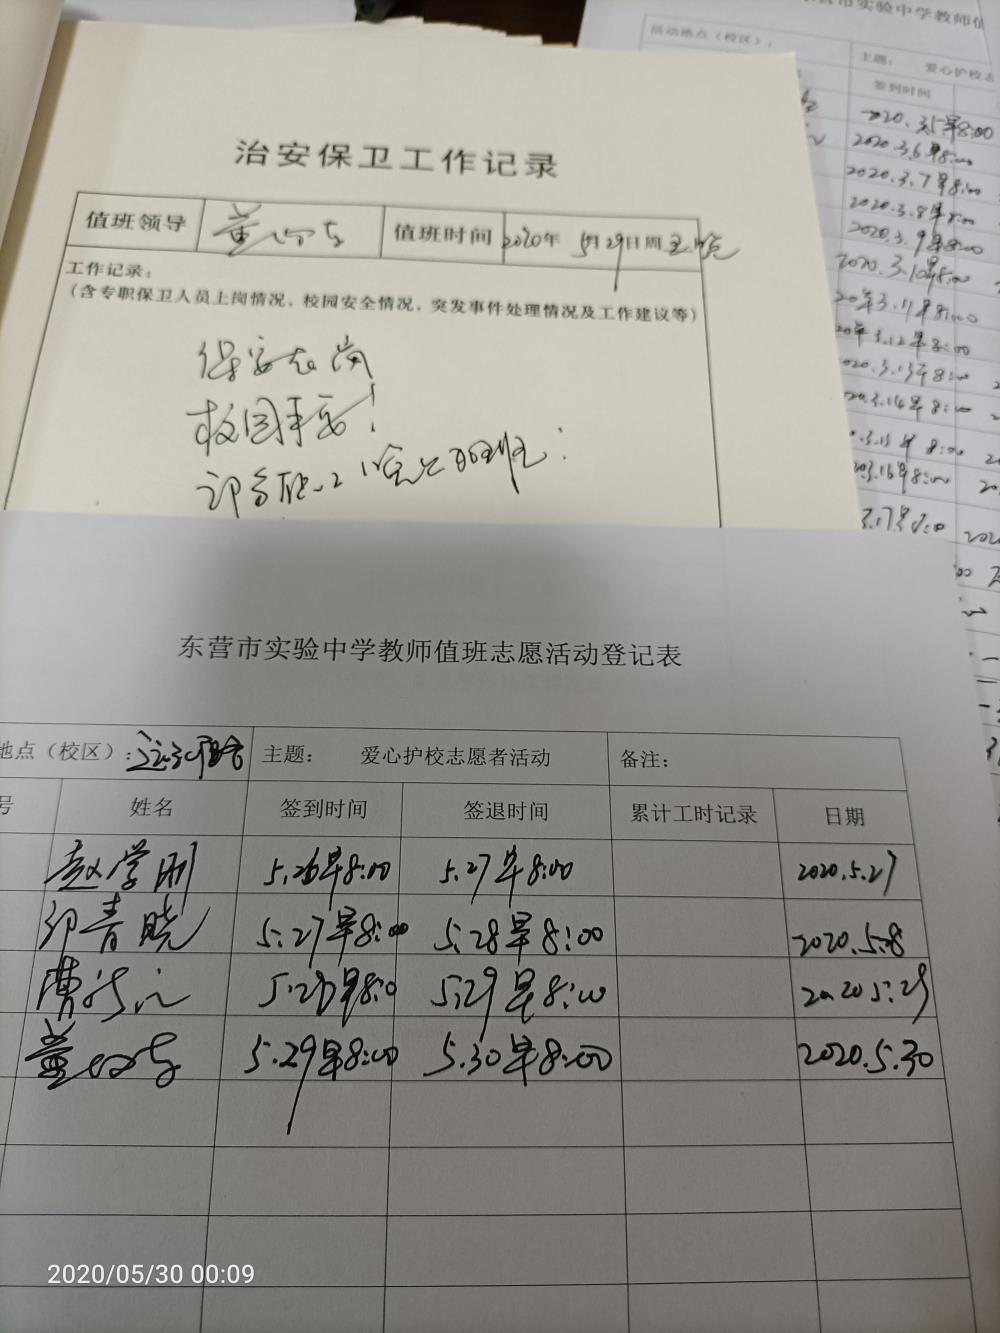 治安保卫工作记录
值班领导 值班时间 2020年 5月29日周五晚
工作记录：
（含专职保卫人员上岗情况，校园安全情况，突发事件处理情况及工作建议等）
保安在岗
校园平安！
东营市实验中学教师
活动地点（校区）： 主题： 爱心护校志
签到时间
2020.3.5早8:00
2020.3.6早8:00
2020.3.7早8:00
2020.3.8早8:00
2020.3.9早8:00
2020.3.10早8:00
20年3.11早8:00
20年3.12早8:00
2020.3.13早8:00
2020.3.14早8:00
3.15早8:00
3.16早8:00
3.17早8:00
东营市实验中学教师值班志愿活动登记表
地点（校区）： 主题： 爱心护校志愿者活动 备注：
号 姓名 签到时间 签退时间 累计工时记录 日期
赵学刚 5.26早8:00 5.27早8:00 2020.5.27
印青晓 5.27早8:00 5.28早8:00 2020.5.28
曹 5.28早8:0 5.29早8:00 2020 5.29
董 5.29早8:00 5.30早8:00 2020.5.30
2020/05/30 00:09